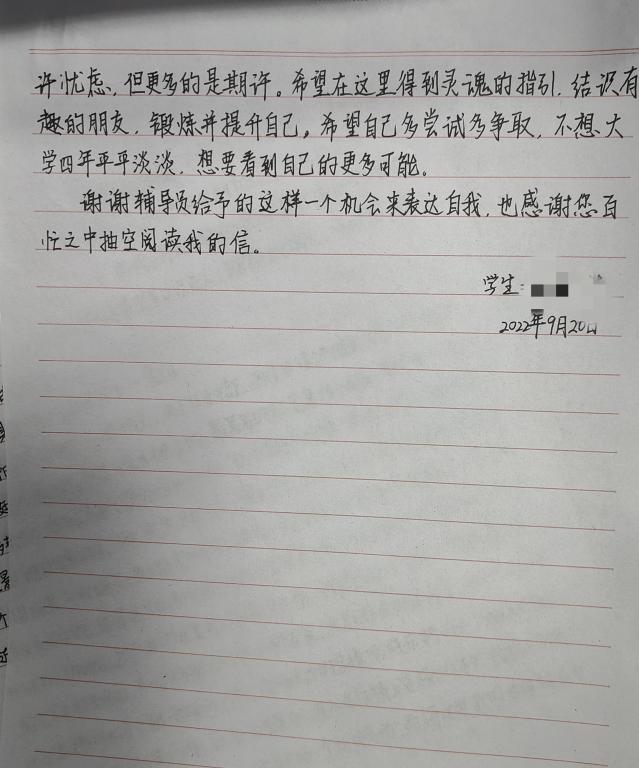 许忧虑,但更多的是期许。希望在这里得到灵魂的指引,结识有
趣的朋友,锻炼并提升自己。希望自己多尝试多争取,不想大
学四年平平淡淡,想要看到自己的更多可能。
谢谢辅导员给予的这样一个机会来表达自我,也感谢您百
忙之中抽空阅读我的信。
学生:
2022年9月20日